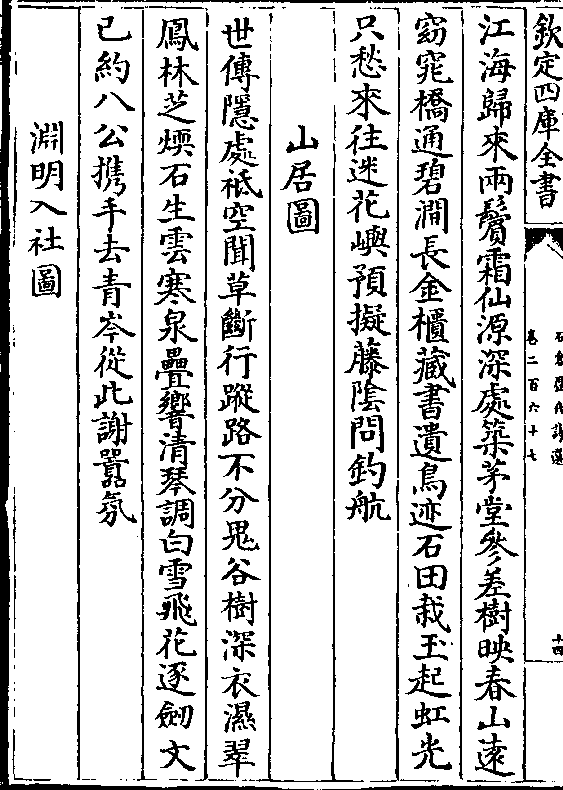 欽定四庫全書
石倉歷代詩選
卷二百六十七
十四
江海歸來兩鬢霜仙源深處築茅堂參差樹映春山遠
窈窕橋通碧澗長金櫃藏書遺鳥迹石田栽玉起虹光
只愁來往迷花嶼預擬藤陰問釣航
山居圖
世傳隱處祗空聞草斷行蹤路不分鬼谷樹深衣濕翠
鳳林芝煗石生雲寒泉疊響清琴調白雪飛花逐劒文
已約八公攜手去青岑從此謝囂氛
淵明入社圖